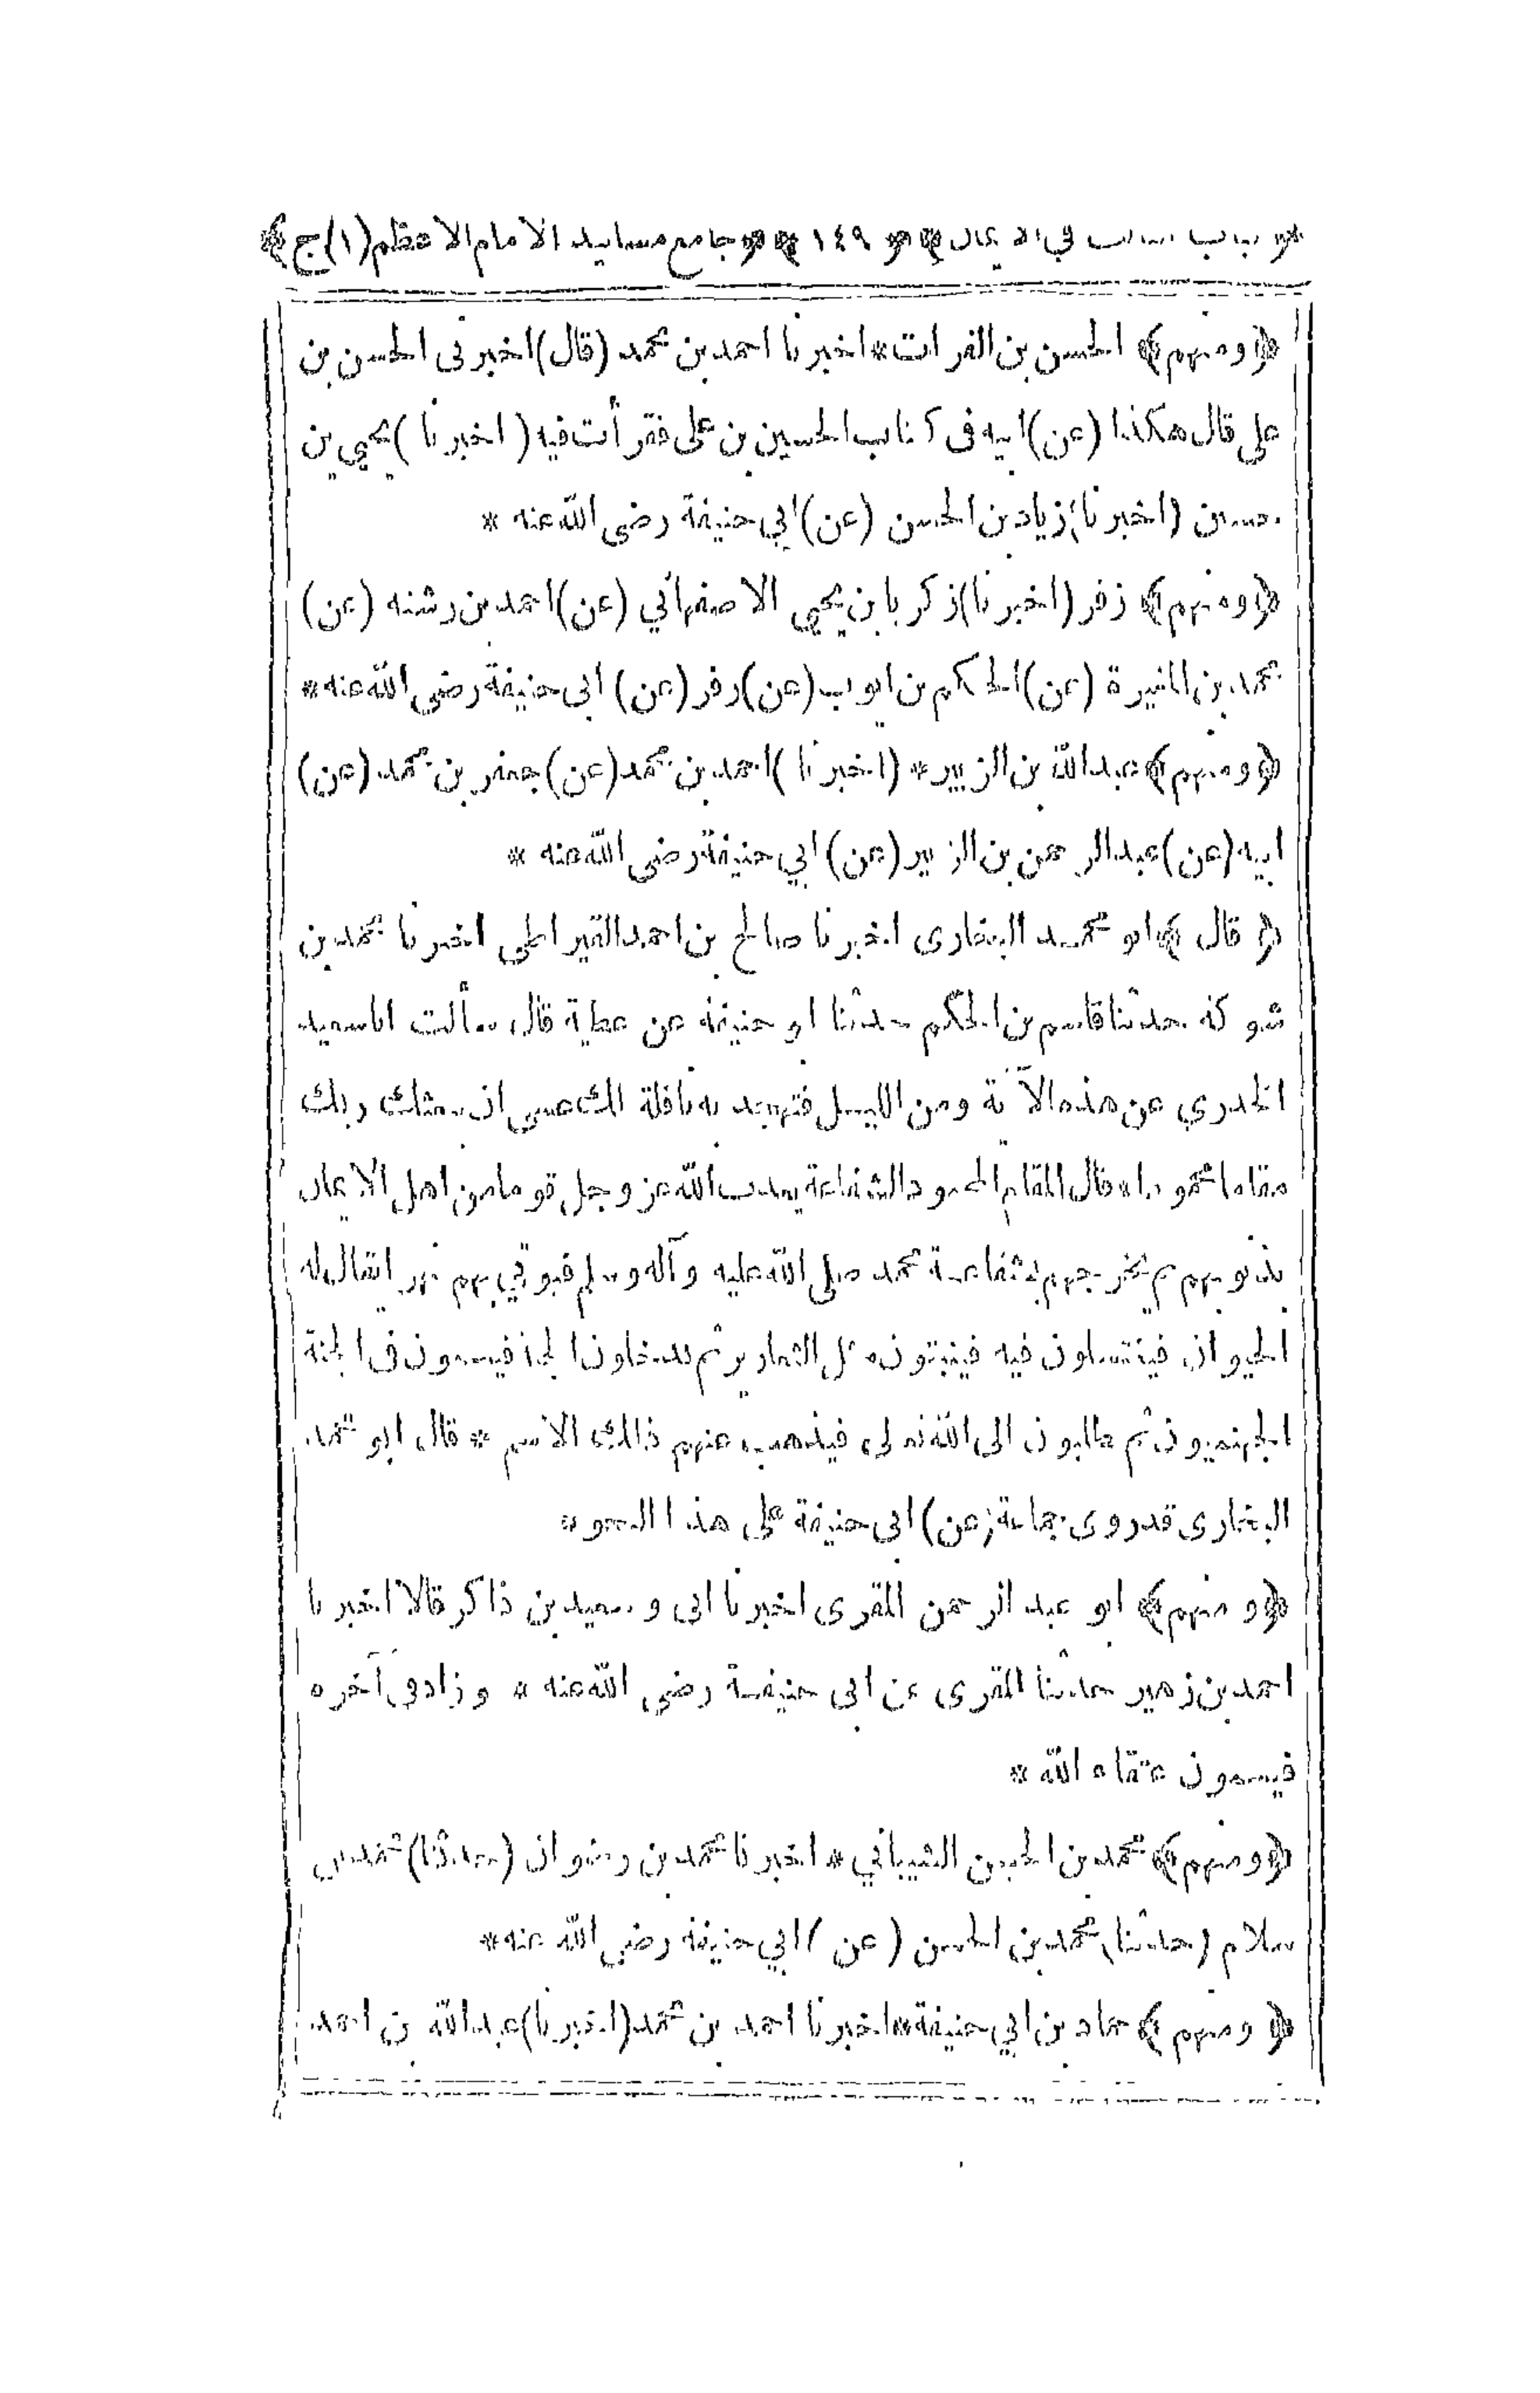 ﴿ باب الثالث في الايمان ﴾ ﴿ ١٤٩ ﴾ ﴿ جامع مسانيد الامام الاعظم (١) ج ﴾
﴿ ومنهم ﴾ الحسن بن الفرات * اخبرنا احمد بن محمد (قال) اخبرنى الحسن بن
على قال هكذا (عن) ابيه فى كتاب الحسين بن على فقرأت فيه (اخبرنا) يحيى بن
حسين (اخبرنا) زياد بن الحسن (عن) ابي حنيفة رضى الله عنه *
﴿ ومنهم ﴾ زفر (اخبرنا) زكريا بن يحيى الاصفهاني (عن) احمد بن رشته (عن)
محمد بن المغيرة (عن) الحكم بن ايوب (عن) زفر (عن) ابى حنيفة رضى الله عنه *
﴿ ومنهم ﴾ عبدالله بن الزبير * (اخبرنا) احمد بن محمد (عن) جعفر بن محمد (عن)
ابيه (عن) عبدالرحمن بن الزبير (عن) ابي حنيفة رضى الله عنه *
﴿ قال ﴾ ابو محمد البخارى اخبرنا صالح بن احمد القيراطى اخبرنا محمد بن
شوكة حدثنا قاسم بن الحكم حدثنا ابو حنيفة عن عطية قال سألت اباسعيد
الخدري عن هذه الآية ومن الليل فتهجد به نافلة لك عسى ان يبعثك ربك
مقاما محمودا * قال المقام المحمود الشفاعة يعذب الله عز وجل قوما من اهل الايمان
بذنوبهم ثم يخرجهم بشفاعة محمد صلى الله عليه وآله وسلم فيؤتي بهم نهرا يقال له
الحيوان فيغتسلون فيه فينبتون الثعارير ثم يدخلون الجنة فيسمون فى الجنة
الجهنميون ثم يطلبون الى الله تعالى فيذهب عنهم ذلك الاسم * قال ابو محمد
البخارى قد روى جماعة (عن) ابى حنيفة على هذا النحو *
﴿ ومنهم ﴾ ابو عبد الرحمن المقرى اخبرنا ابى وسعيد بن ذاكر قالا اخبرنا
احمد بن زهير حدثنا المقرى عن ابى حنيفة رضي الله عنه * وزاد فى آخره
فيسمون عتقاء الله *
﴿ ومنهم ﴾ محمد بن الحسن الشيباني * اخبرنا محمد بن رضوان (حدثنا) محمد بن
سلام (حدثنا) محمد بن الحسن (عن) ابي حنيفة رضي الله عنه *
﴿ ومنهم ﴾ حماد بن ابي حنيفة * اخبرنا احمد بن محمد (اخبرنا) عبدالله بن احمد